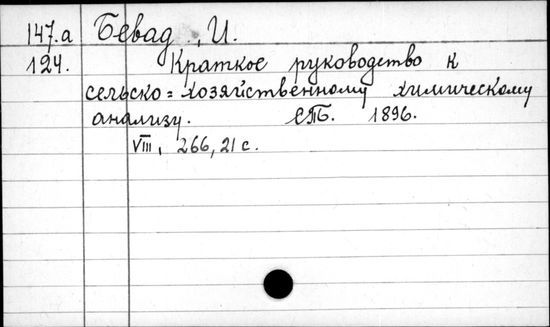 147.а Бевад, И.
124. Краткое руководство к
сельско=хозяйственному химическому
анализу. СПБ. 1896.
VIII, 266, 21 с.